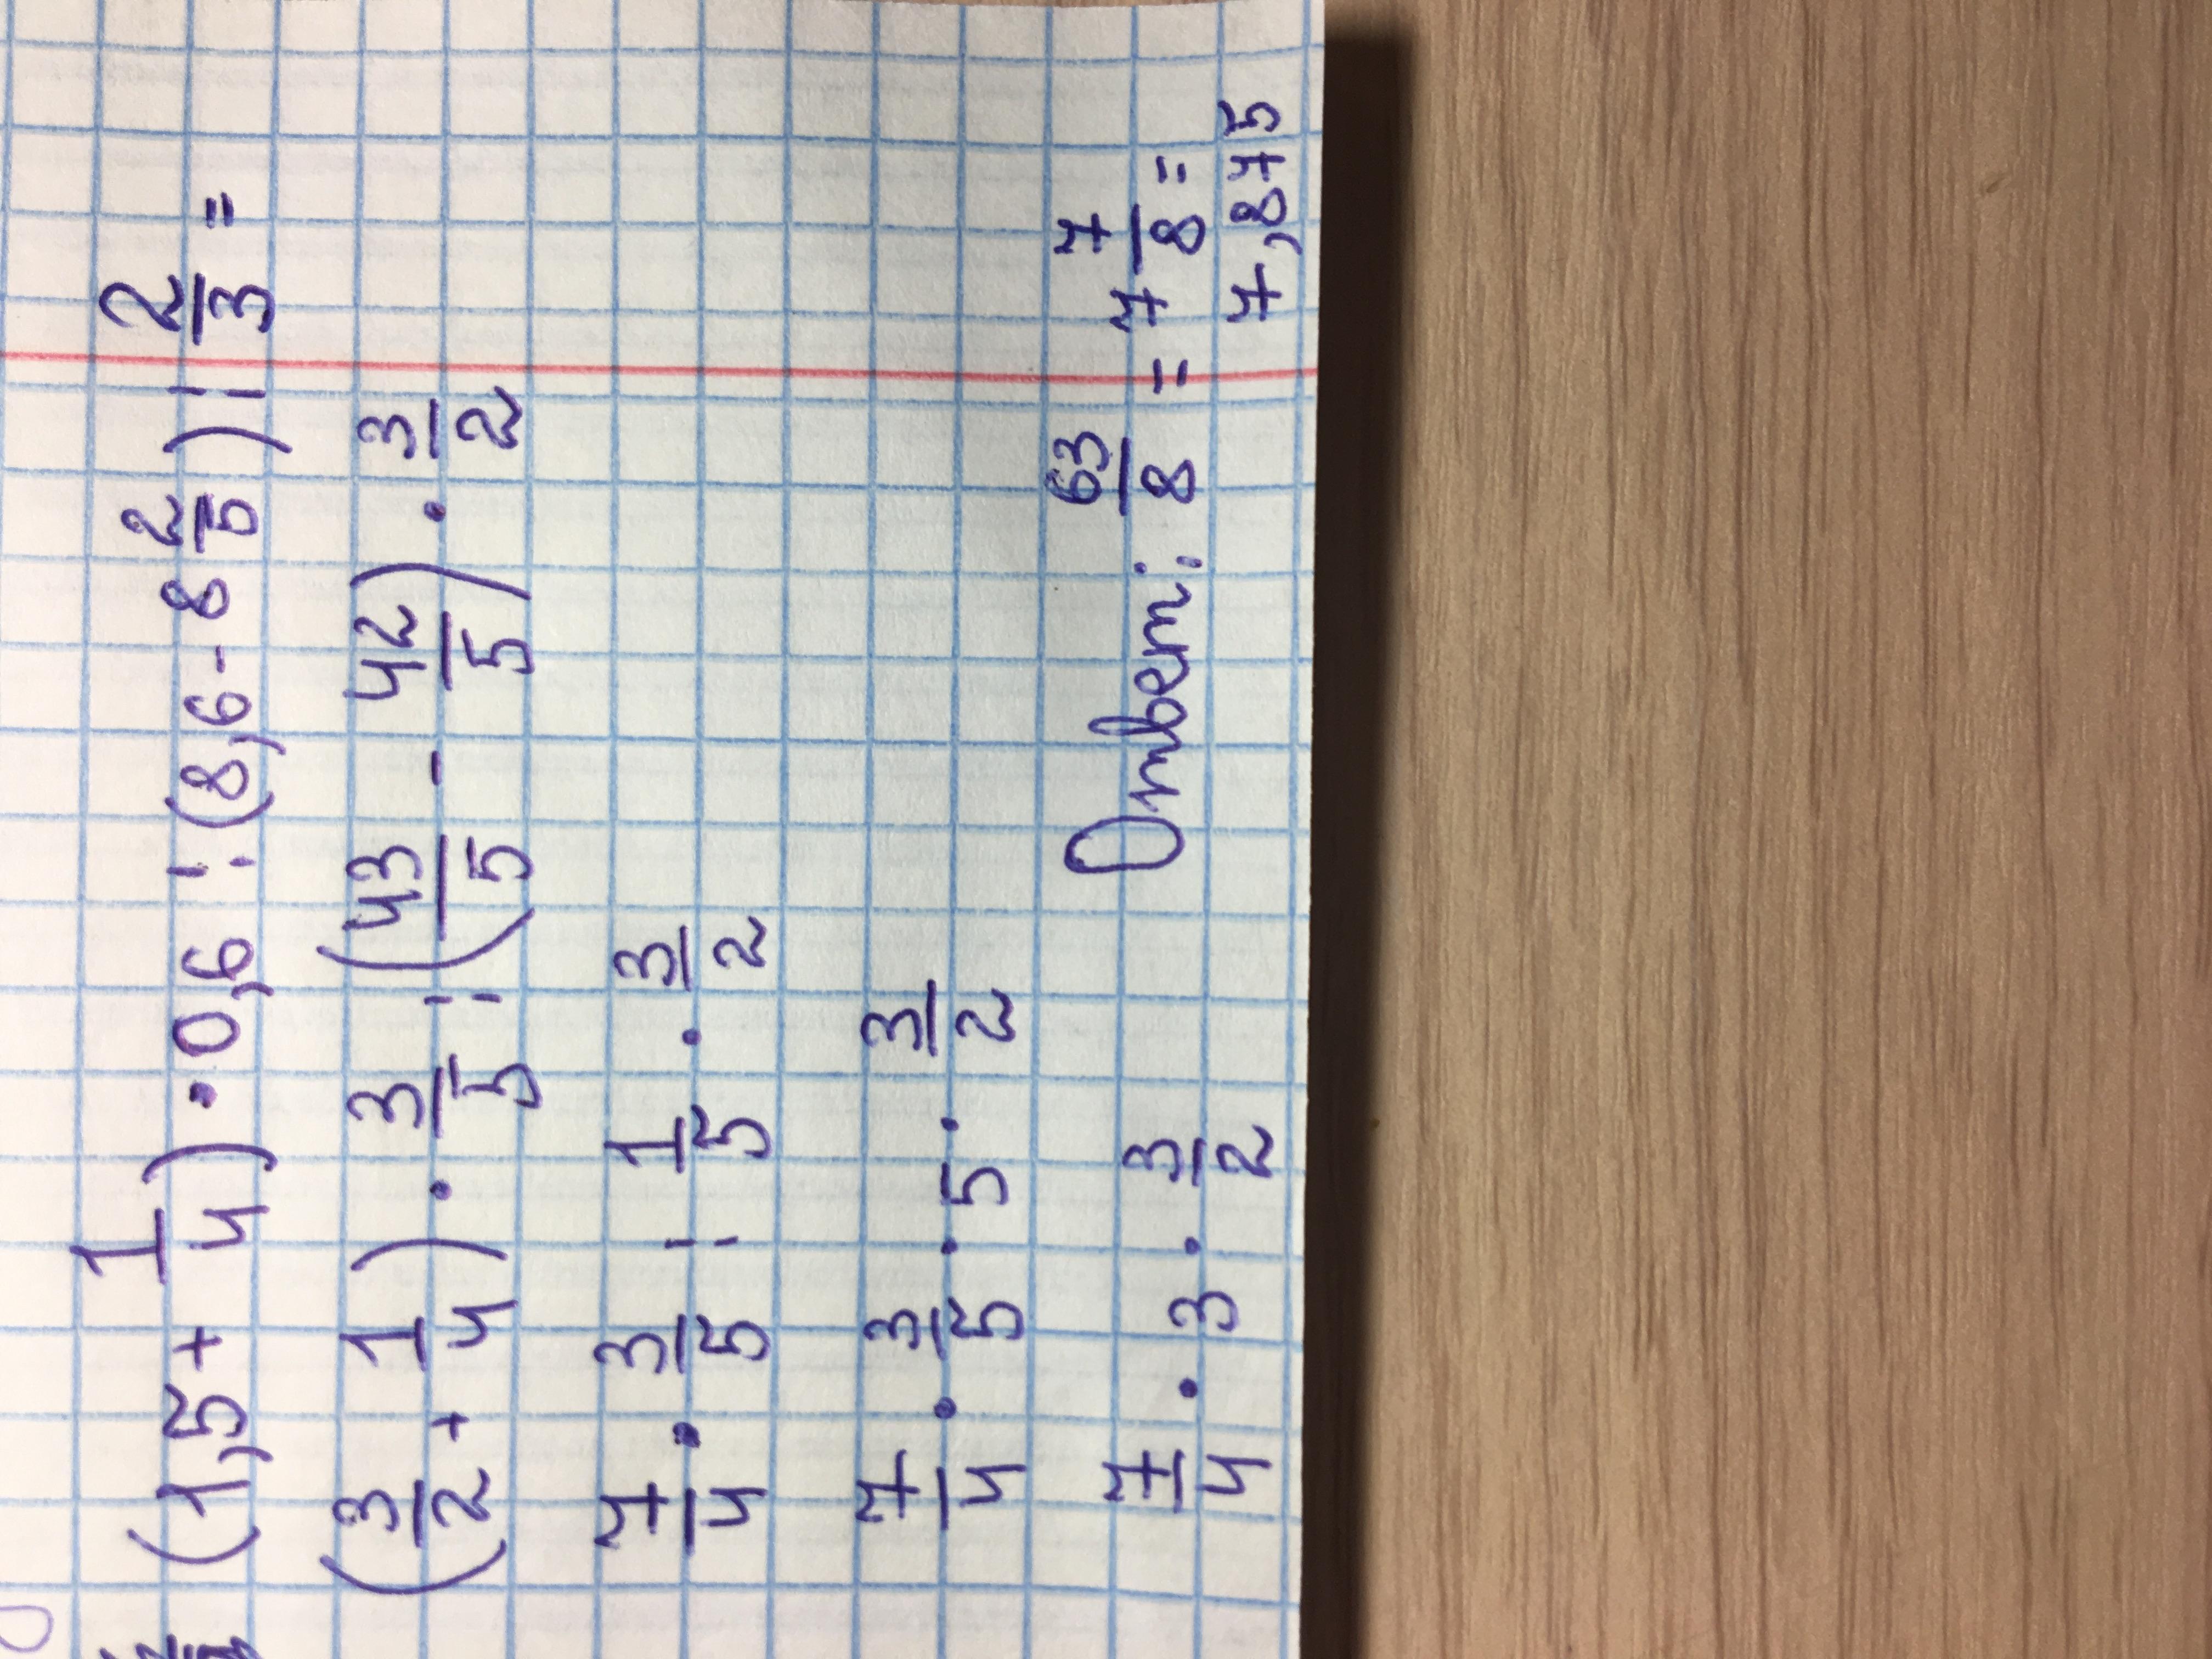 (1,5 + 1/4) · 0,6 : (8,6 - 8 2/5) : 2/3 =
(3/2 + 1/4) · 3/5 : (43/5 - 42/5) · 3/2
7/4 · 3/5 : 1/5 · 3/2
7/4 · 3/5 · 5 · 3/2
7/4 · 3 · 3/2
Ответ: 63/8 = 7 7/8 =
7,875